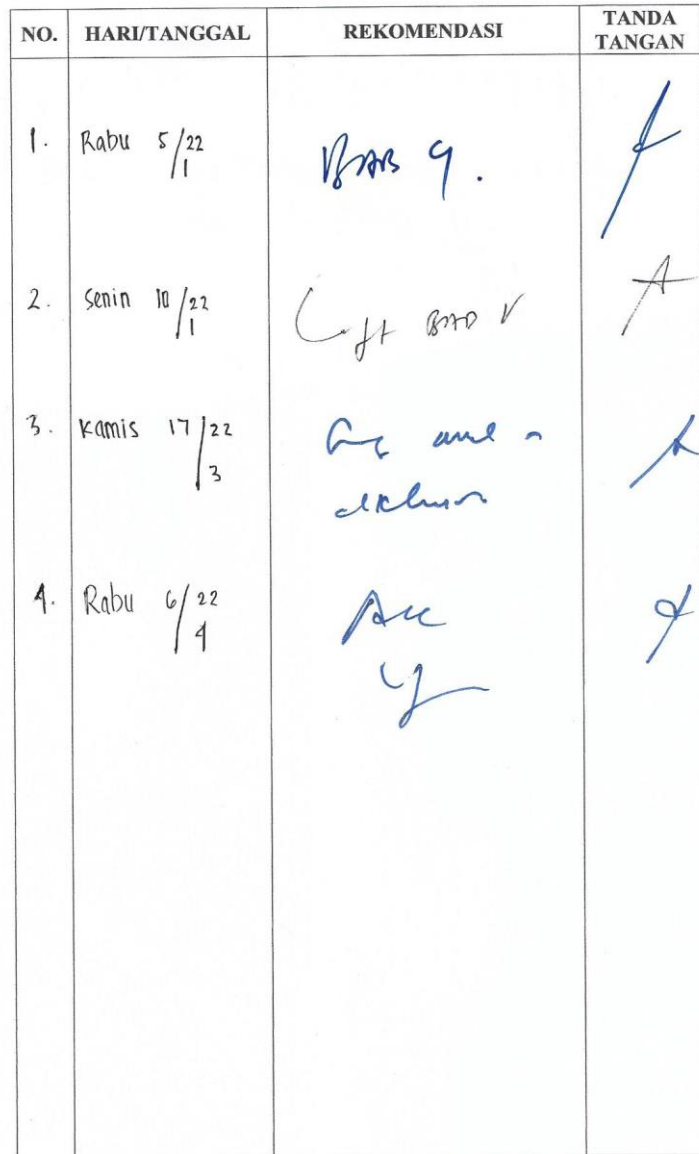 NO. HARI/TANGGAL REKOMENDASI TANDA TANGAN
1. Rabu 5/22 1 BAB 4.
2. Senin 10/22 1 BAB V
3. Kamis 17/22 3
4. Rabu 6/22 4 Acc